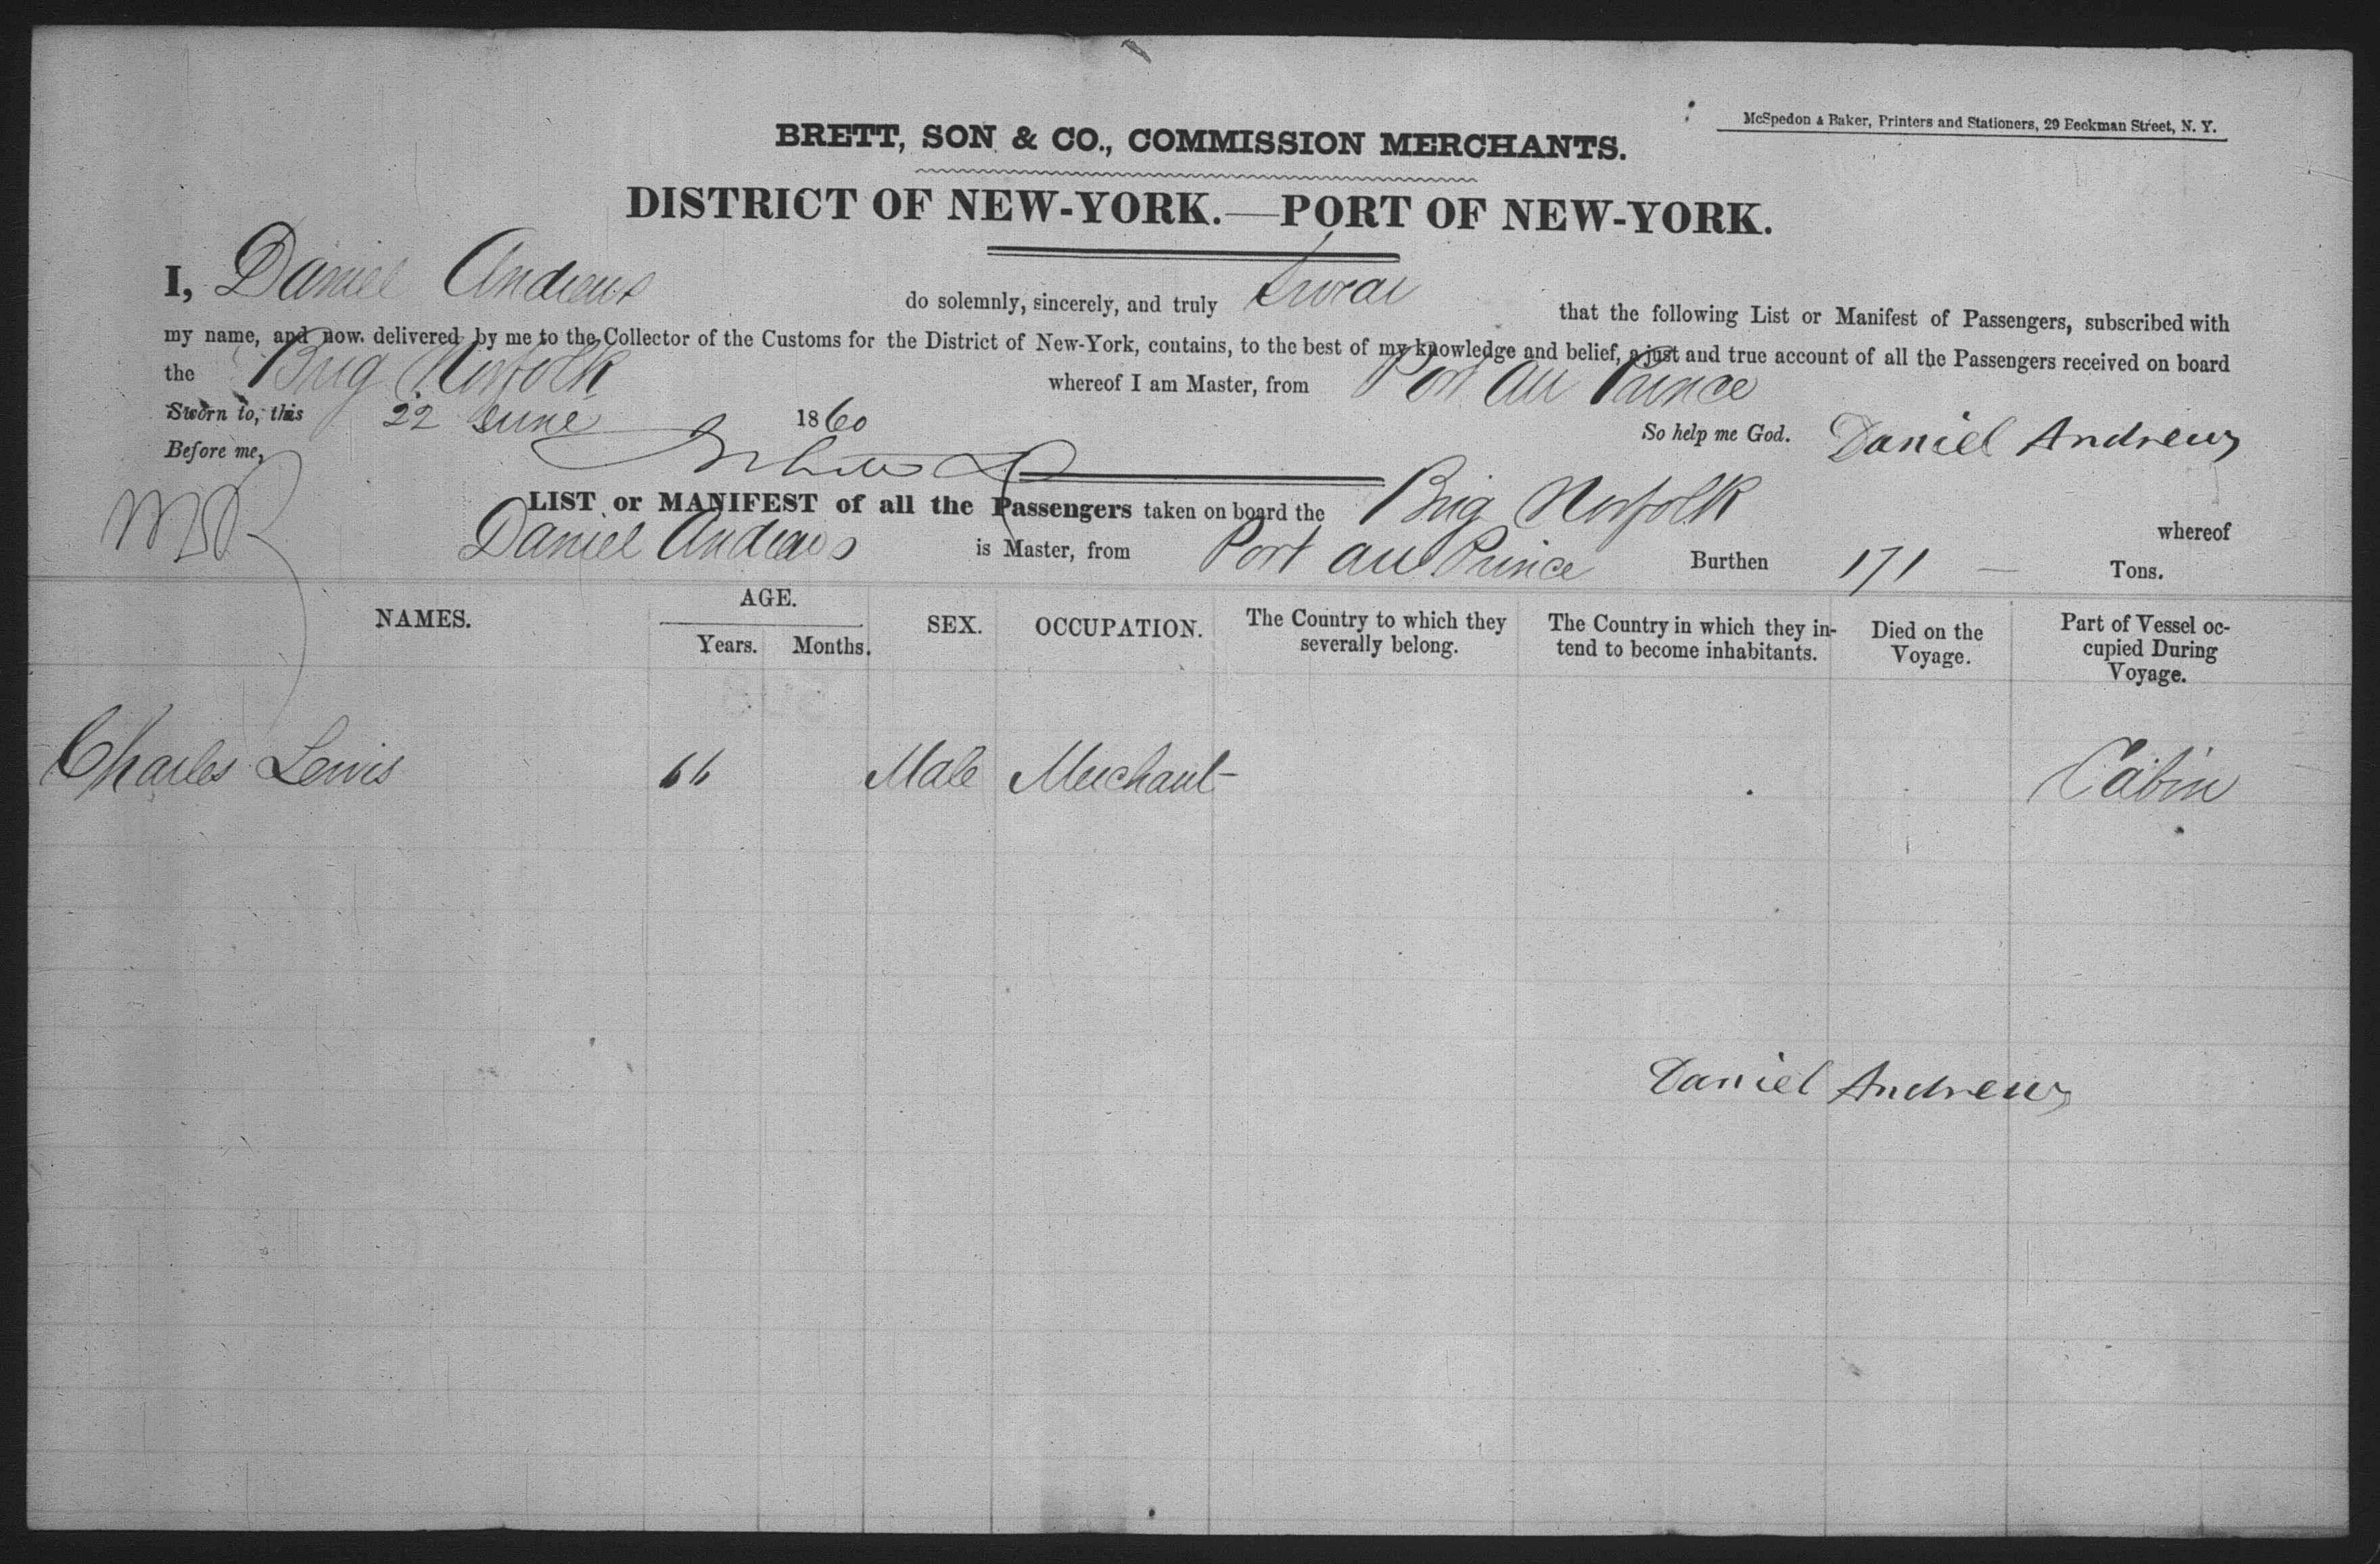 McSpedon & Baker, Printers and Stationers, 29 Beekman Street, N. Y.
BRETT, SON & CO., COMMISSION MERCHANTS.
DISTRICT OF NEW-YORK.—PORT OF NEW-YORK.
I, Daniel Andrews do solemnly, sincerely, and truly Swear that the following List or Manifest of Passengers, subscribed with
my name, and now delivered by me to the Collector of the Customs for the District of New-York, contains, to the best of my knowledge and belief, a just and true account of all the Passengers received on board
the Brig Norfolk whereof I am Master, from Port au Prince
Sworn to, this 22 June 1860 So help me God. Daniel Andrews
Before me,
LIST or MANIFEST of all the Passengers taken on board the Brig Norfolk whereof
Daniel Andrews is Master, from Port au Prince Burthen 171 — Tons.
NAMES. AGE. Years. Months. SEX. OCCUPATION. The Country to which they severally belong. The Country in which they intend to become inhabitants. Died on the Voyage. Part of Vessel occupied During Voyage.
Charles Lewis 66 Male Merchant Cabin
Daniel Andrews